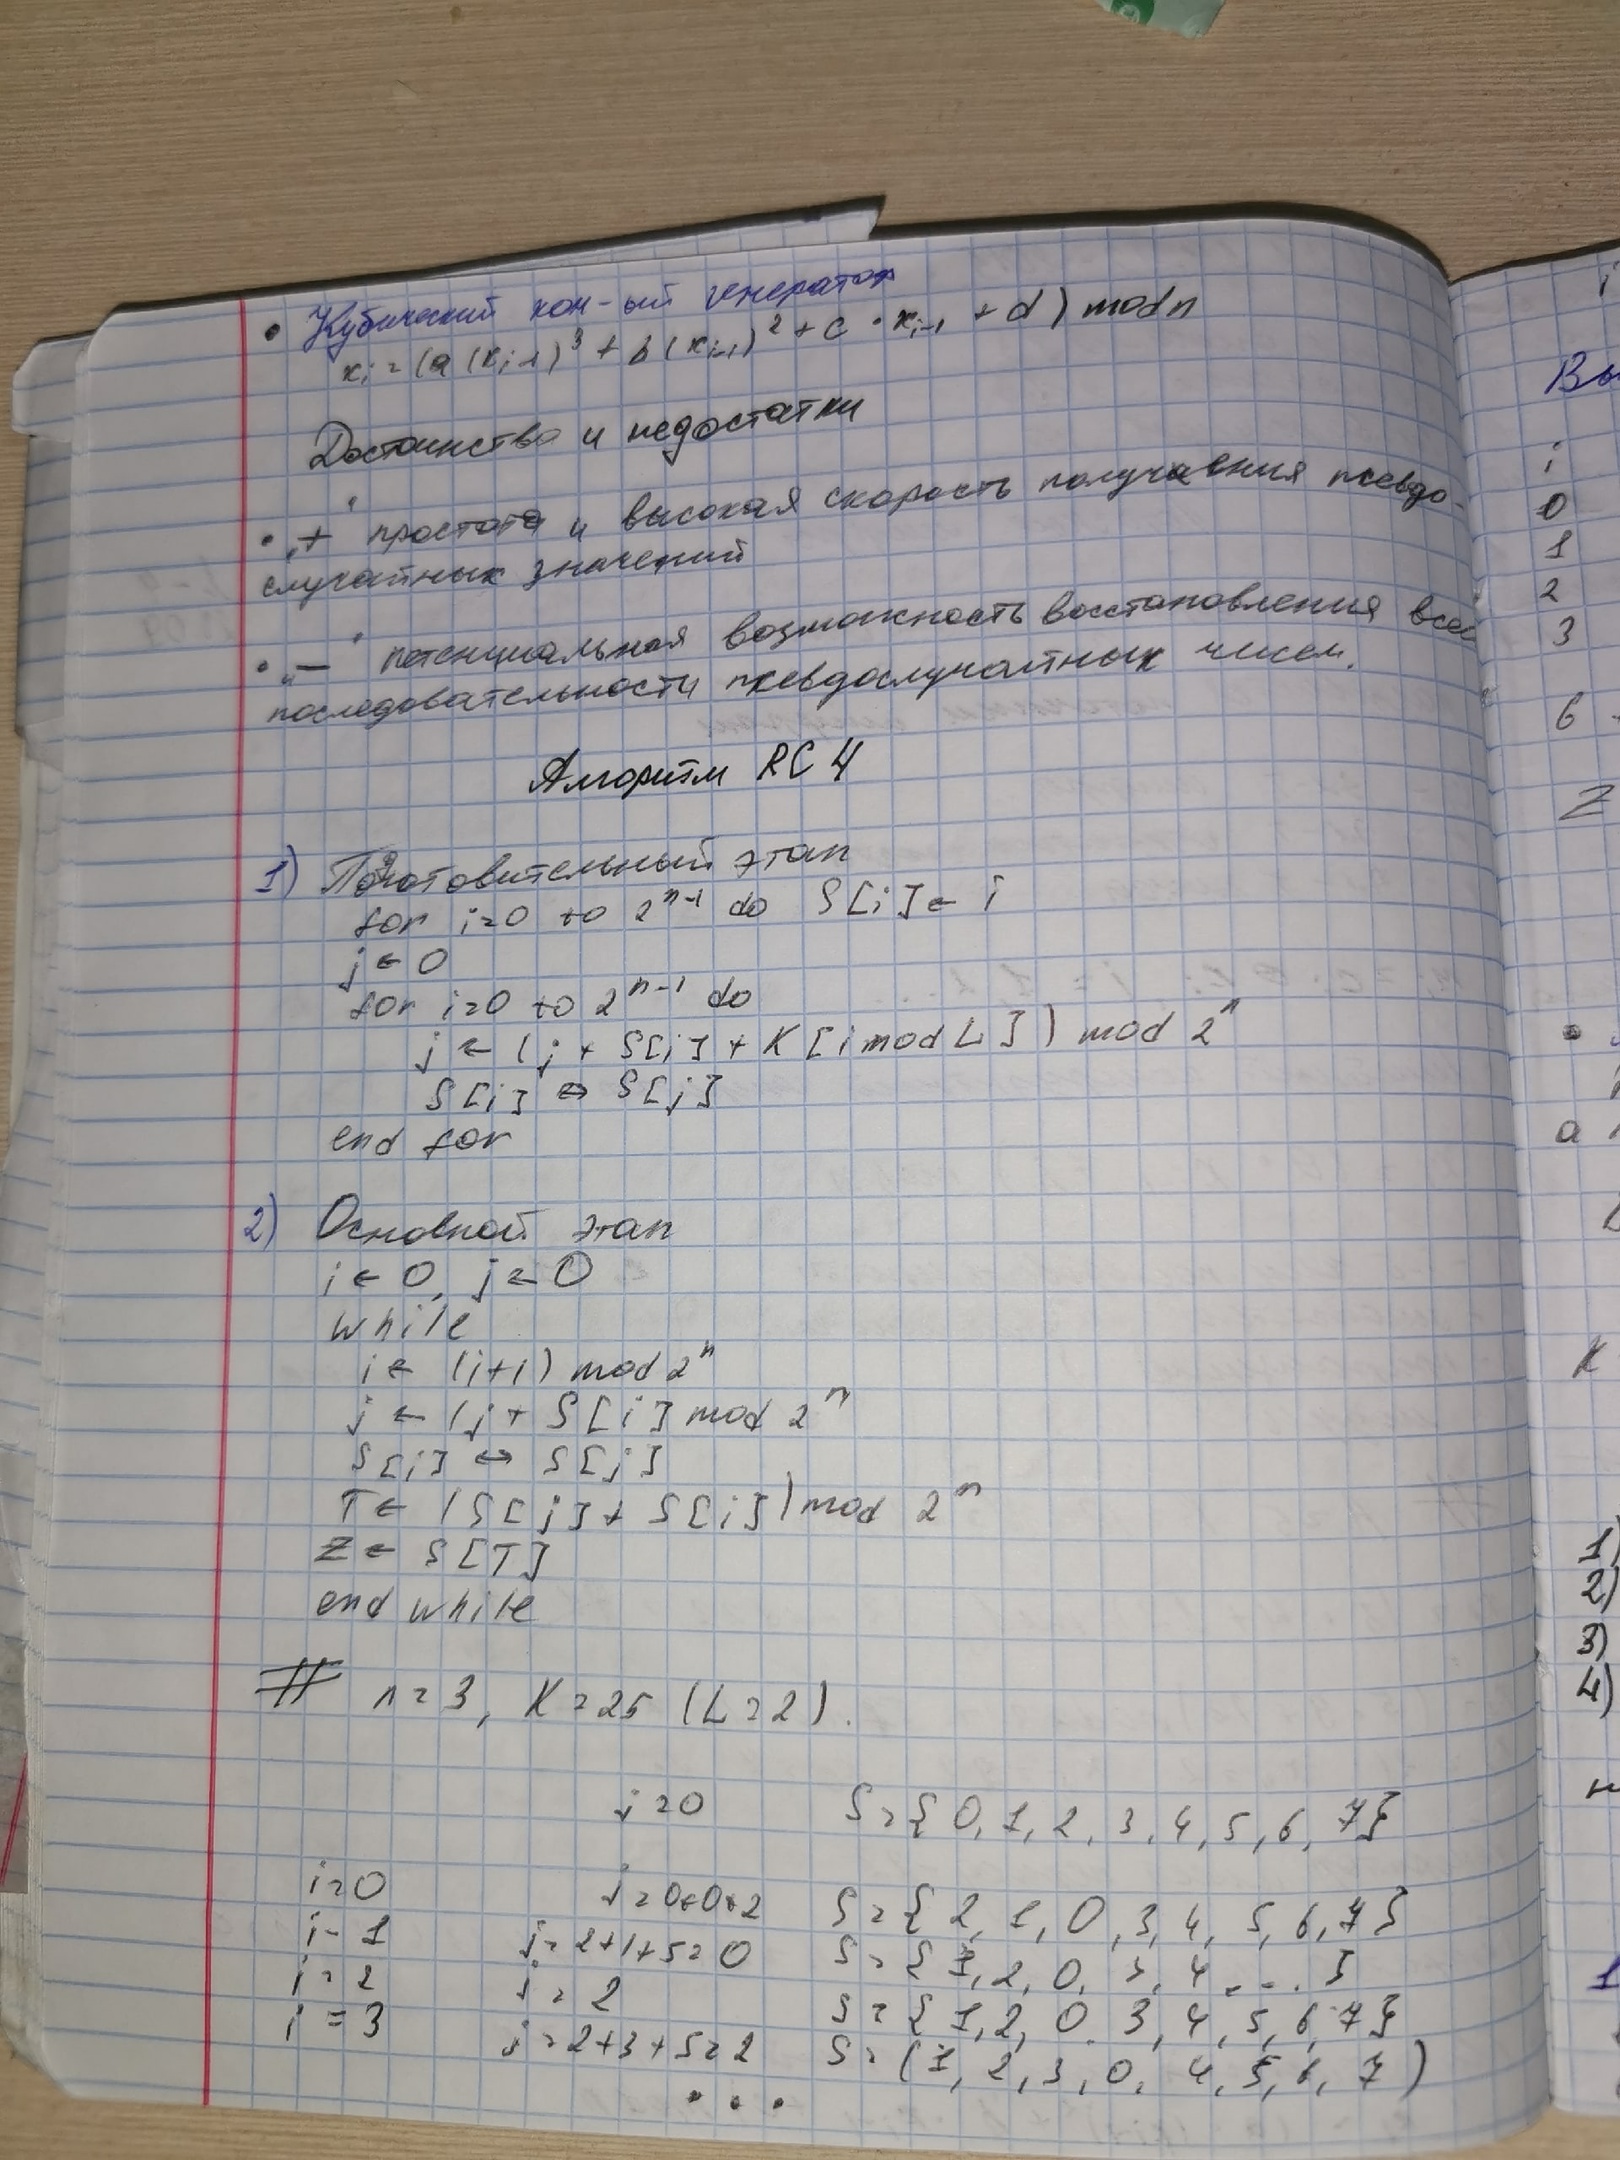 • Кубический кон-ый генератор
xᵢ = (a (xᵢ₋₁)³ + b (xᵢ₋₁)² + c · xᵢ₋₁ + d) mod n
Достоинства и недостатки
• „+" простота и высокая скорость получения псевдо-
случайных значений
• „—" потенциальная возможность восстановления всей
последовательности псевдослучайных чисел.
Алгоритм RC4
1) Подготовительный этап
for i=0 to 2ⁿ⁻¹ do S[i] ← i
j ← 0
for i=0 to 2ⁿ⁻¹ do
j ← (j + S[i] + K[i mod L]) mod 2ⁿ
S[i] ⇔ S[j]
end for
2) Основной этап
i ← 0, j ← 0
while
i ← (i+1) mod 2ⁿ
j ← (j + S[i] mod 2ⁿ
S[i] ↔ S[j]
T ← (S[j] + S[i]) mod 2ⁿ
Z ← S[T]
end while
# n = 3, K = 25 (L = 2).
j = 0 S = {0, 1, 2, 3, 4, 5, 6, 7}
i = 0 j = 0+0+2 S = {2, 1, 0, 3, 4, 5, 6, 7}
i - 1 j = 2+1+5 = 0 S = {1, 2, 0, 3, 4 . . . }
i = 2 j = 2 S = {1, 2, 0, 3, 4, 5, 6, 7}
i = 3 j = 2+3+5 = 2 S = (1, 2, 3, 0, 4, 5, 6, 7)
. . .
i
i
0
1
2
3
6
Z
•
a
K
1)
2)
3)
4)
1